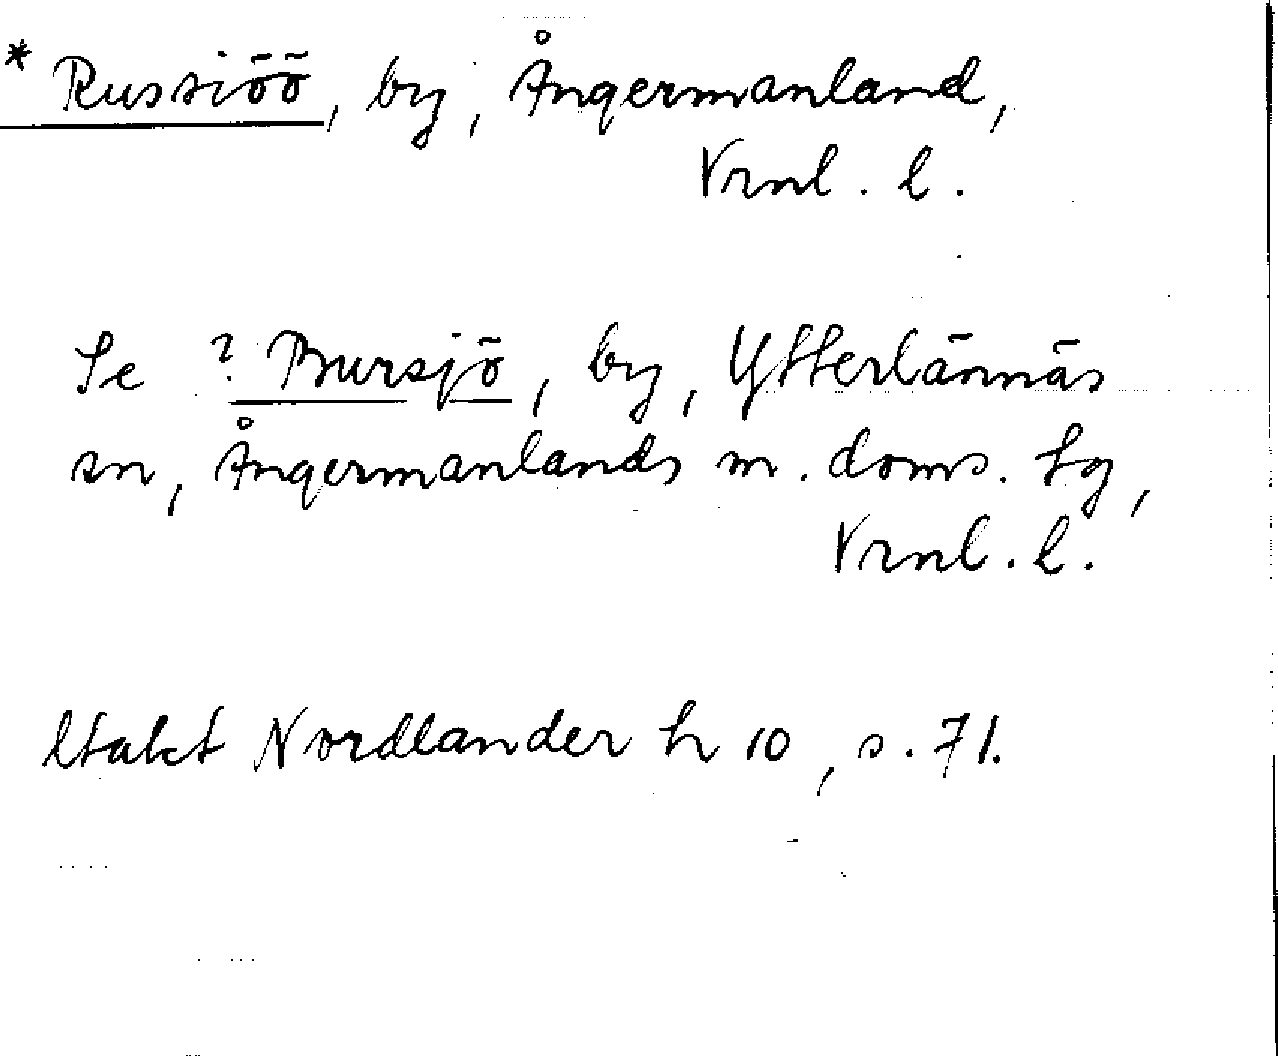 * Russiöö, by, Ångermanland,
Vrnl. l.
Se ? Bursjö, by, Ytterlännäs
sn, Ångermanlands m. doms. tg,
Vrnl. l.
Utakt Nordlander h 10, s. 71.